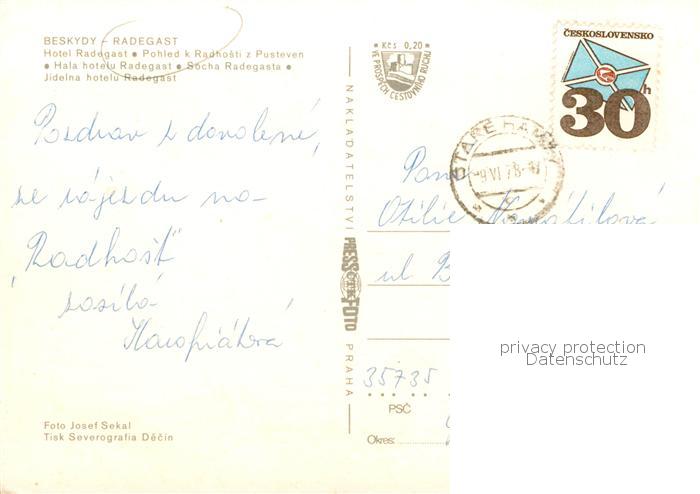 BESKYDY – RADEGAST
Hotel Radegast ● Pohled k Radhošti z Pusteven
● Hala hotelu Radegast ● Socha Radegasta ●
Jídelna hotelu Radegast
Pozdrav z dovolené,
se zájezdu na
"Radhošť"
zasílá
Foto Josef Sekal
Tisk Severografia Děčín
NAKLADATELSTVÍ
PRESSFOTO
PRAHA
Kčs 0,20
VE PROSPĚCH CESTOVNÍHO RUCHU
ČESKOSLOVENSKO
30h
STARÉ HAMRY
Otilie
ul B
35735
PSČ
Okres:
privacy protection
Datenschutz